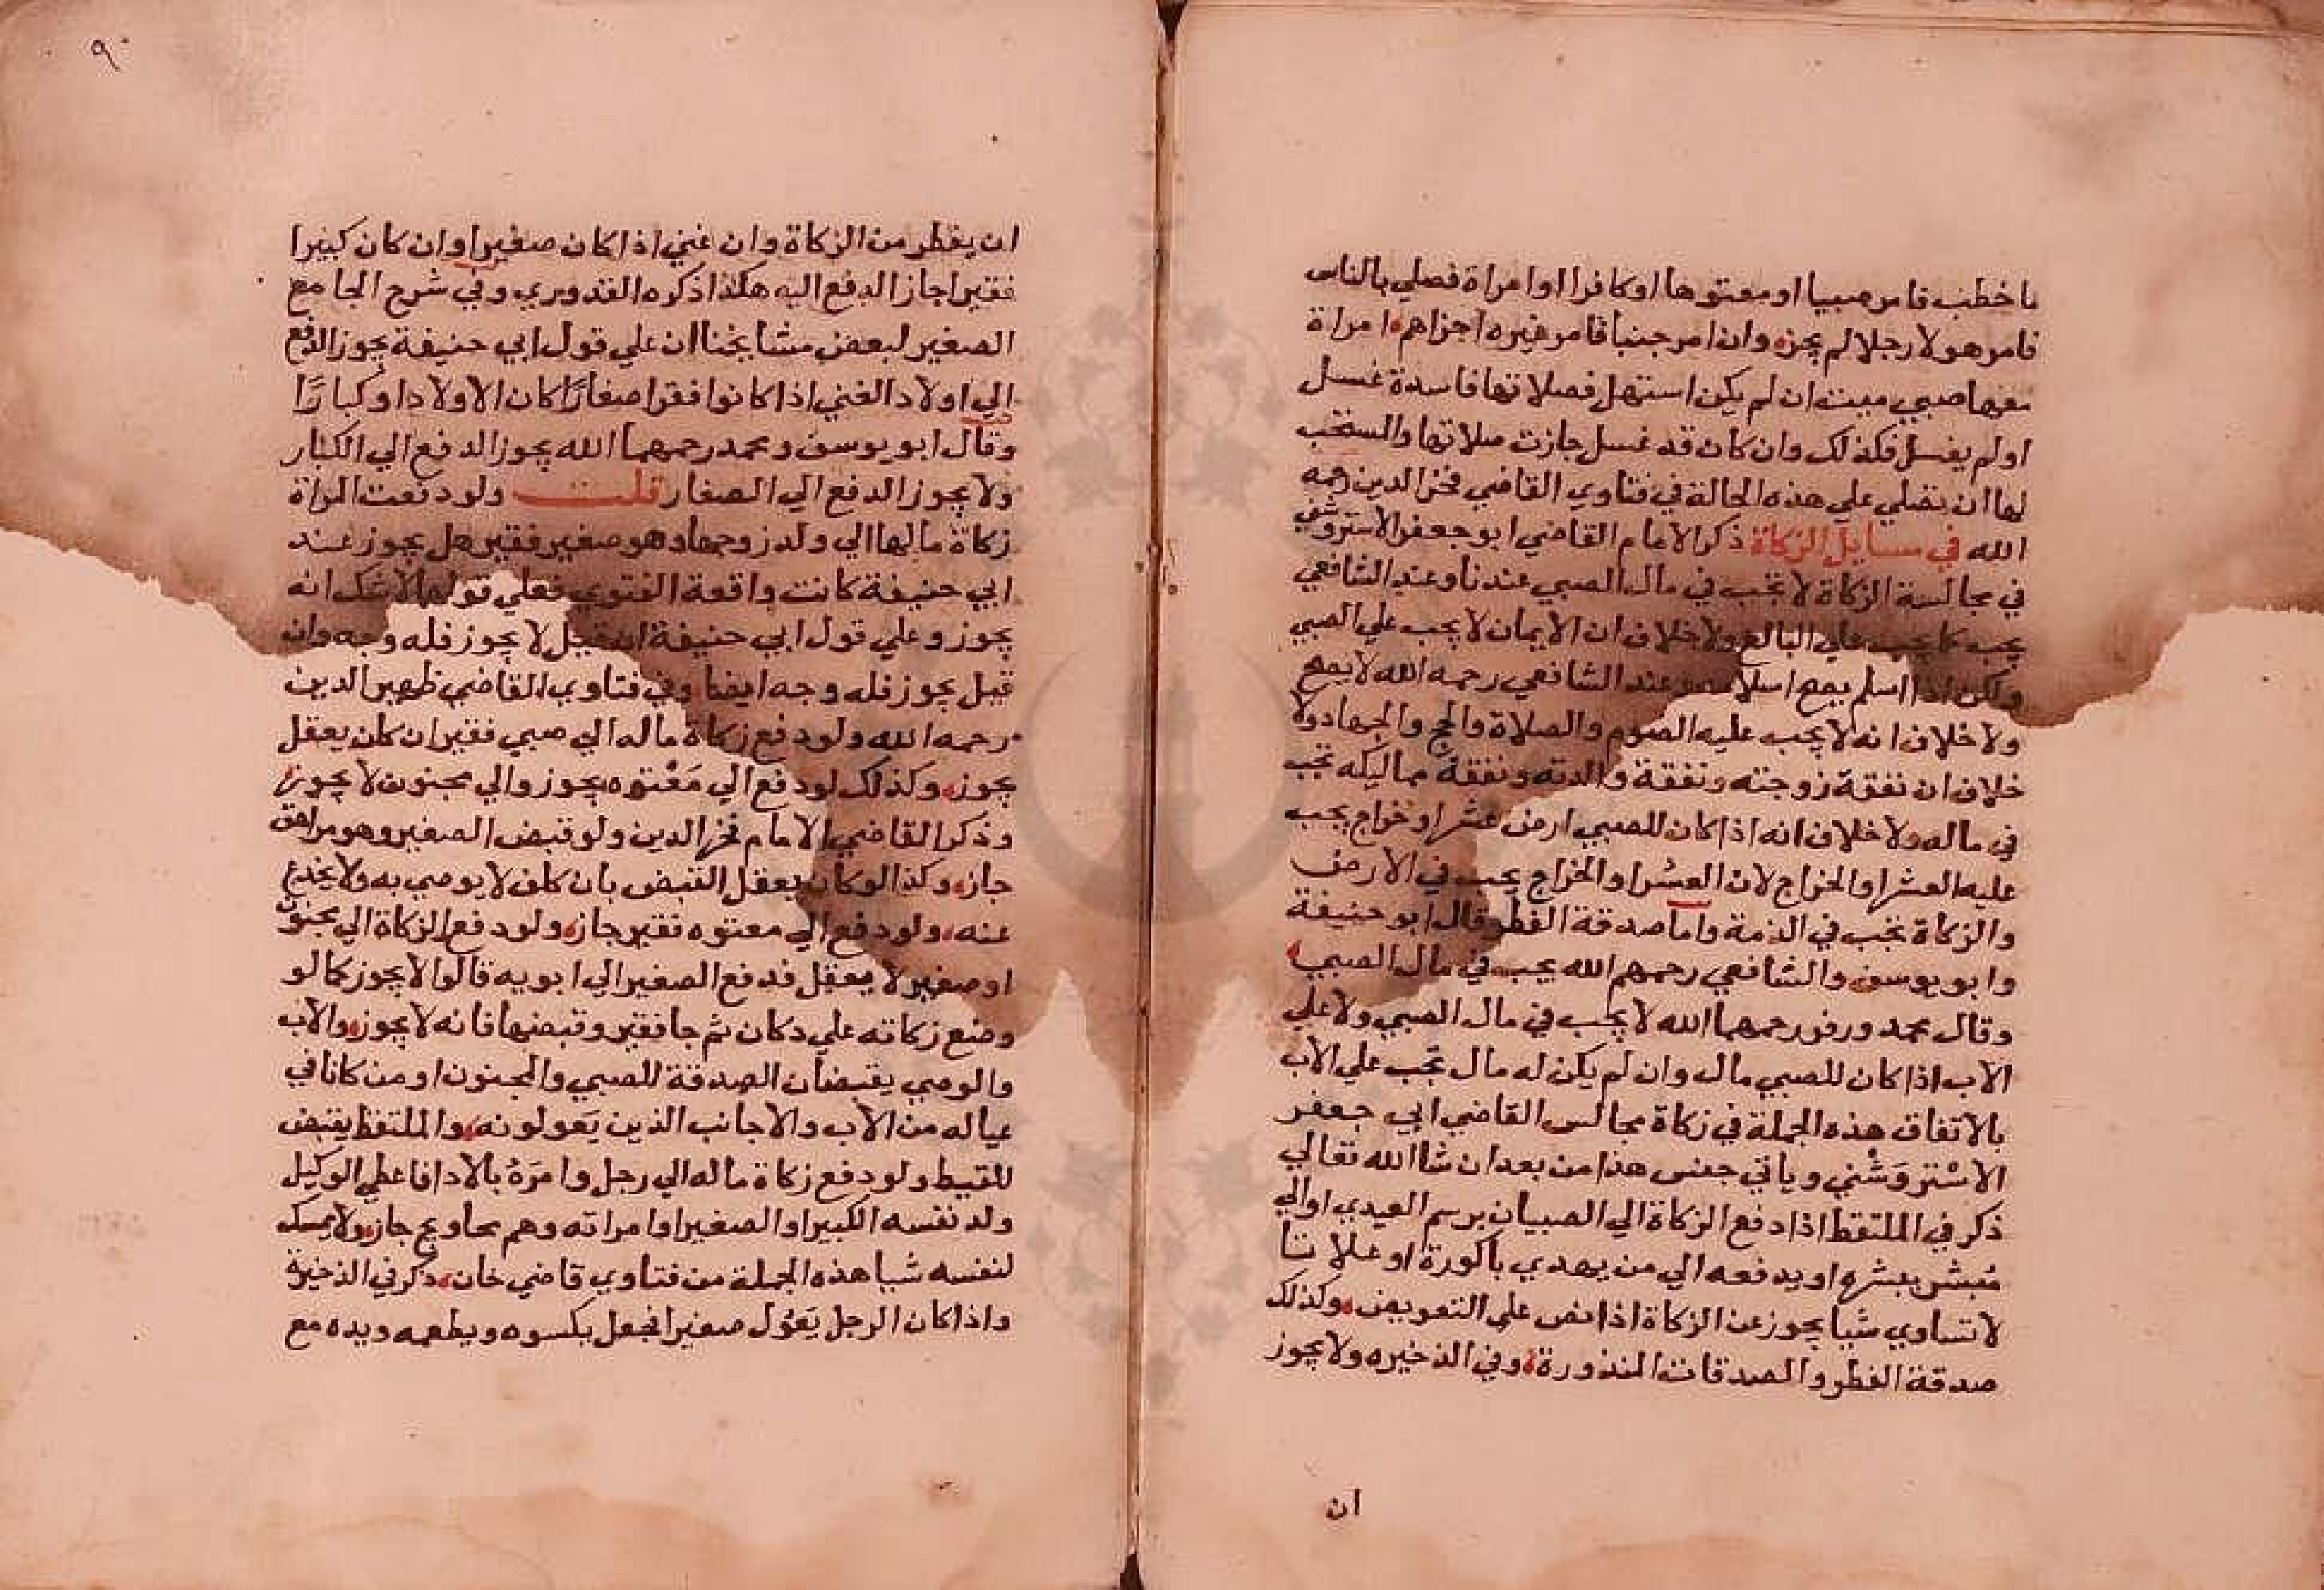 ناخطب فامر صبيا او معتوها او كافرا او امراة فصلي بالناس
فامر هولا رجلا لم يجزه وان امر جنبا فامر غيره اجزاهم امراة
معها صبي ميت ان لم يكن استهل فصلاتها فاسدة غسل
او لم يغسل فكذلك وان كان قد غسل جازت صلاتها والمستحب
لها ان تصلي علي هذه الحالة في فتاوي القاضي فخر الدين رحمه
الله في مسايل الزكاة ذكر الامام القاضي ابو جعفر الاستروشني
في مجالسة الزكاة لا تجب في مال الصبي عندنا وعند الشافعي
يجب كما يجب علي البالغ ولا خلاف ان الايمان لا يجب علي الصبي
ولكن اذا اسلم يصح اسلامه وعند الشافعي رحمه الله لا يصح
ولا خلاف انه لا يجب عليه الصوم والصلاة والحج والجهاد ولا
خلاف ان نفقة زوجته ونفقة والدته ونفقة مماليكه تجب
في ماله ولا خلاف انه اذا كان للصبي ارض عشر او خراج يجب
عليه العشر او الخراج لان العشر او الخراج يجب في الارض
والزكاة تجب في الذمة واما صدقة الفطر وقال ابو حنيفة
وابو يوسف والشافعي رحمهم الله يجب في مال الصبي
وقال محمد ورفر رحمهما الله لا يجب في مال الصبي ولا علي
الاب اذا كان للصبي مال وان لم يكن له مال تجب علي الاب
بالاتفاق هذه الجملة في زكاة مجالس القاضي ابي جعفر
الاسْتروَشْني وياتي جنس هذا من بعد ان شا الله تعالي
ذكر في الملتقط اذا دفع الزكاة الي الصبيان برسم العيدي او الي
مُبشر يبشره او يدفعه الي من يهدي باكورة او علا نتا
لا تساوي شيا يجوز عن الزكاة اذا نص علي التعويض وكذلك
صدقة الفطر والصدقات المنذورة وفي الذخيره ولا يجوز
ان
٩٠
ان يعطي من الزكاة وان غني اذا كان صغيرا وان كان كبيرا
فقيرا جاز الدفع اليه هكذا ذكره القدوري وفي شرح الجامع
الصغير لبعض مشايخنا ان علي قول ابي حنيفة يجوز الدفع
الي اولاد الغني اذا كانوا فقرا صغارًا كان الاولاد او كبارًا
وقال ابو يوسف ومحمد رحمهما الله يجوز الدفع الي الكبار
ولا يجوز الدفع الي الصغار قلت ولو دفعت المراة
زكاة مالها الي ولد زوجها وهو صغير فقير هل يجوز عند
ابي حنيفة كانت واقعة الفتوي فعلي قولهما لا شك انه
يجوز وعلي قول ابي حنيفة ان قيل لا يجوز فله وجه وان
قيل يجوز فله وجه ايضا وفي فتاوي القاضي ظهير الدين
رحمه الله ولو دفع زكاة ماله الي صبي فقير ان كان يعقل
يجوز وكذلك لو دفع الي مَعْتوه يجوز والي مجنون لا يجوز
وذكر القاضي الامام فخر الدين ولو قبض الصغير وهو مراهق
جاز وكذا لو كان يعقل القبض بان كان لا يرمي به ولا يخدع
عنه ولو دفع الي معتوه فقير جاز ولو دفع الزكاة الي مجنون
او صغير لا يعقل فدفع الصغير الي ابويه قالوا لا يجوز كما لو
وضع زكاته علي دكان ثم جا فقير وقبضها فانه لا يجوز والاب
والوصي يقبضان الصدقة للصبي والمجنون او من كانا في
عياله من الاب والاجانب الذين يَعولونه والملتقط يقبض
للقيط ولو دفع زكاة ماله الي رجل وامرَهُ بالادا فاعطي الوكيل
ولد نفسه الكبير او الصغير او امراته وهم محاويج جاز ولا يمسك
لنفسه شيا هذه الجملة من فتاوي قاضي خان ذكر في الذخيرة
واذا كان الرجل يَعُول صغيرا فجعل يكسوه ويطعمه ويده مع